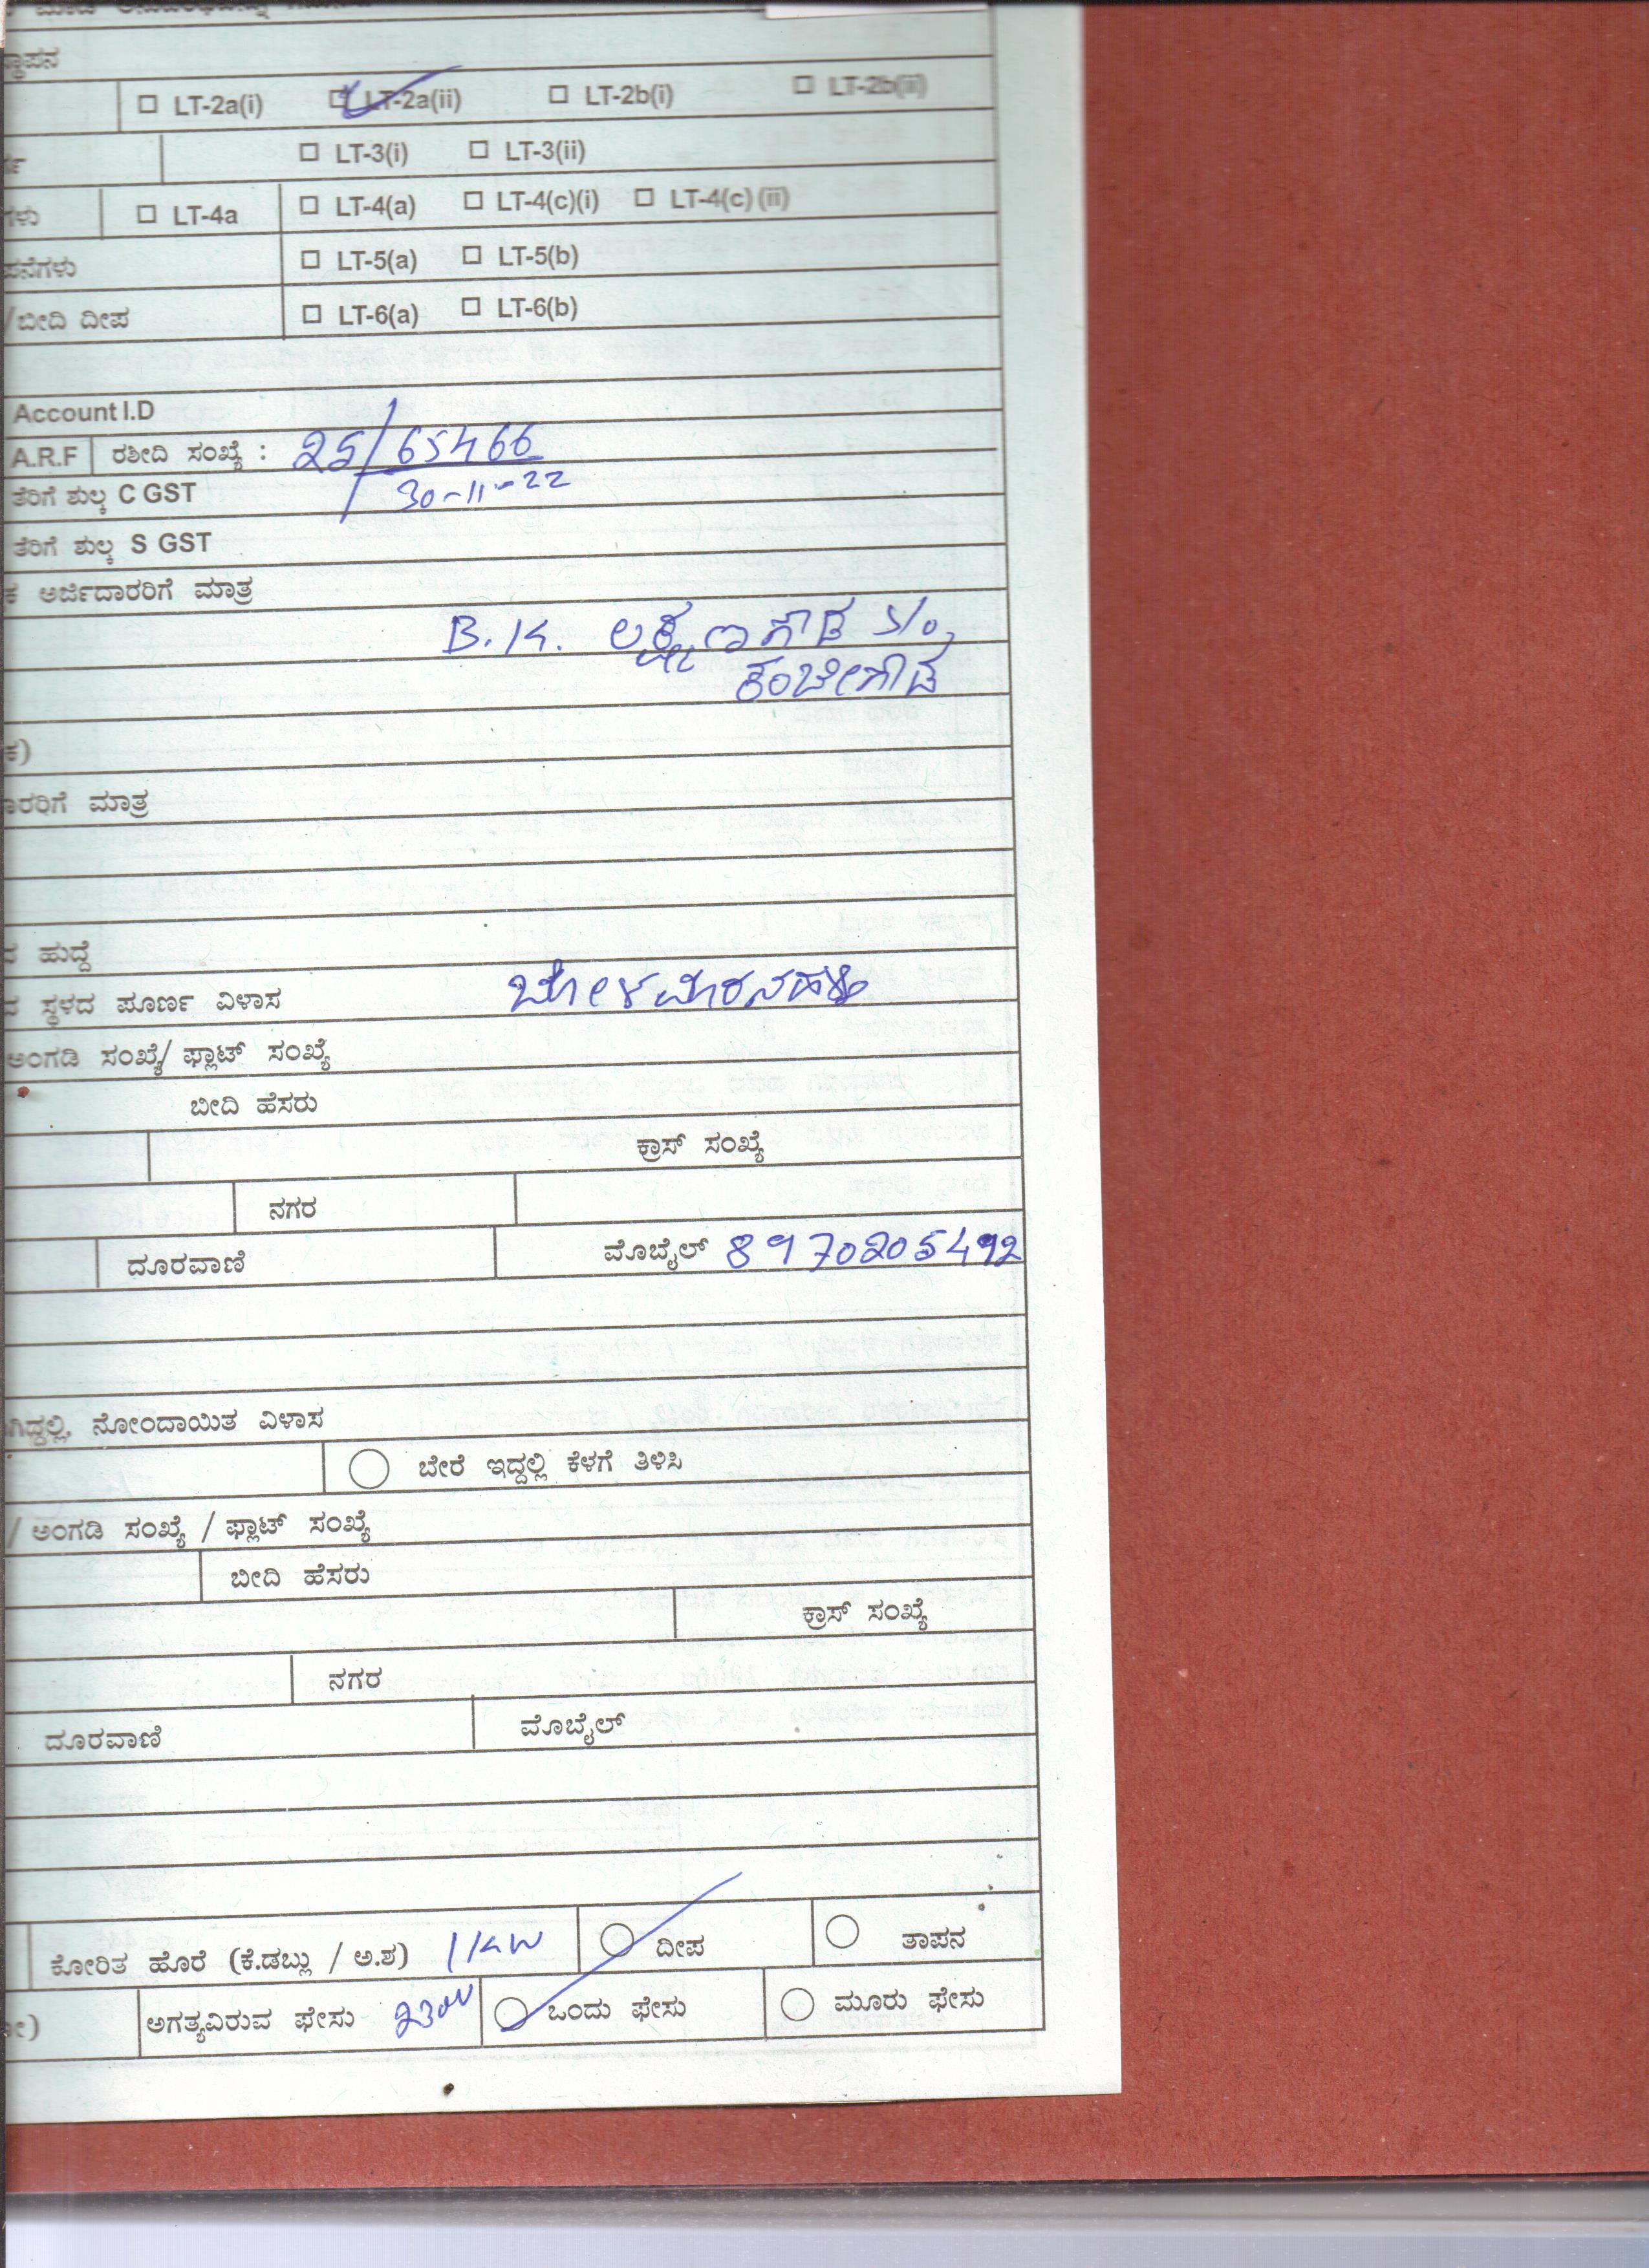 ☐ LT-2a(i) ☑ LT-2a(ii) ☐ LT-2b(i) ☐ LT-2b(ii)
☐ LT-3(i) ☐ LT-3(ii)
ಗಳು ☐ LT-4a ☐ LT-4(a) ☐ LT-4(c)(i) ☐ LT-4(c)(ii)
ಪನೆಗಳು ☐ LT-5(a) ☐ LT-5(b)
/ಬೀದಿ ದೀಪ ☐ LT-6(a) ☐ LT-6(b)
Account I.D
A.R.F ರಶೀದಿ ಸಂಖ್ಯೆ : 25/65466
ತೆರಿಗೆ ಶುಲ್ಕ C GST 30-11-22
ತೆರಿಗೆ ಶುಲ್ಕ S GST
ಕ ಅರ್ಜಿದಾರರಿಗೆ ಮಾತ್ರ
B.K. ಲಕ್ಷ್ಮಣಗೌಡ S/o,
ಕೆಂಚೇಗೌಡ
ಕ)
ಾರರಿಗೆ ಮಾತ್ರ
ವ ಹುದ್ದೆ
ವ ಸ್ಥಳದ ಪೂರ್ಣ ವಿಳಾಸ ಬೋಳಮಾರನಹಳ್ಳಿ
ಅಂಗಡಿ ಸಂಖ್ಯೆ/ ಫ್ಲಾಟ್ ಸಂಖ್ಯೆ
ಬೀದಿ ಹೆಸರು
ಕ್ರಾಸ್ ಸಂಖ್ಯೆ
ನಗರ
ದೂರವಾಣಿ ಮೊಬೈಲ್ 8970205492
ಗಿದ್ದಲ್ಲಿ, ನೋಂದಾಯಿತ ವಿಳಾಸ
ಬೇರೆ ಇದ್ದಲ್ಲಿ ಕೆಳಗೆ ತಿಳಿಸಿ
/ ಅಂಗಡಿ ಸಂಖ್ಯೆ / ಫ್ಲಾಟ್ ಸಂಖ್ಯೆ
ಬೀದಿ ಹೆಸರು
ಕ್ರಾಸ್ ಸಂಖ್ಯೆ
ನಗರ
ದೂರವಾಣಿ ಮೊಬೈಲ್
ಕೋರಿತ ಹೊರೆ (ಕೆ.ಡಬ್ಲು / ಅ.ಶ) 1KW ದೀಪ ತಾಪನ
ಅಗತ್ಯವಿರುವ ಫೇಸು 230V ಒಂದು ಫೇಸು ಮೂರು ಫೇಸು